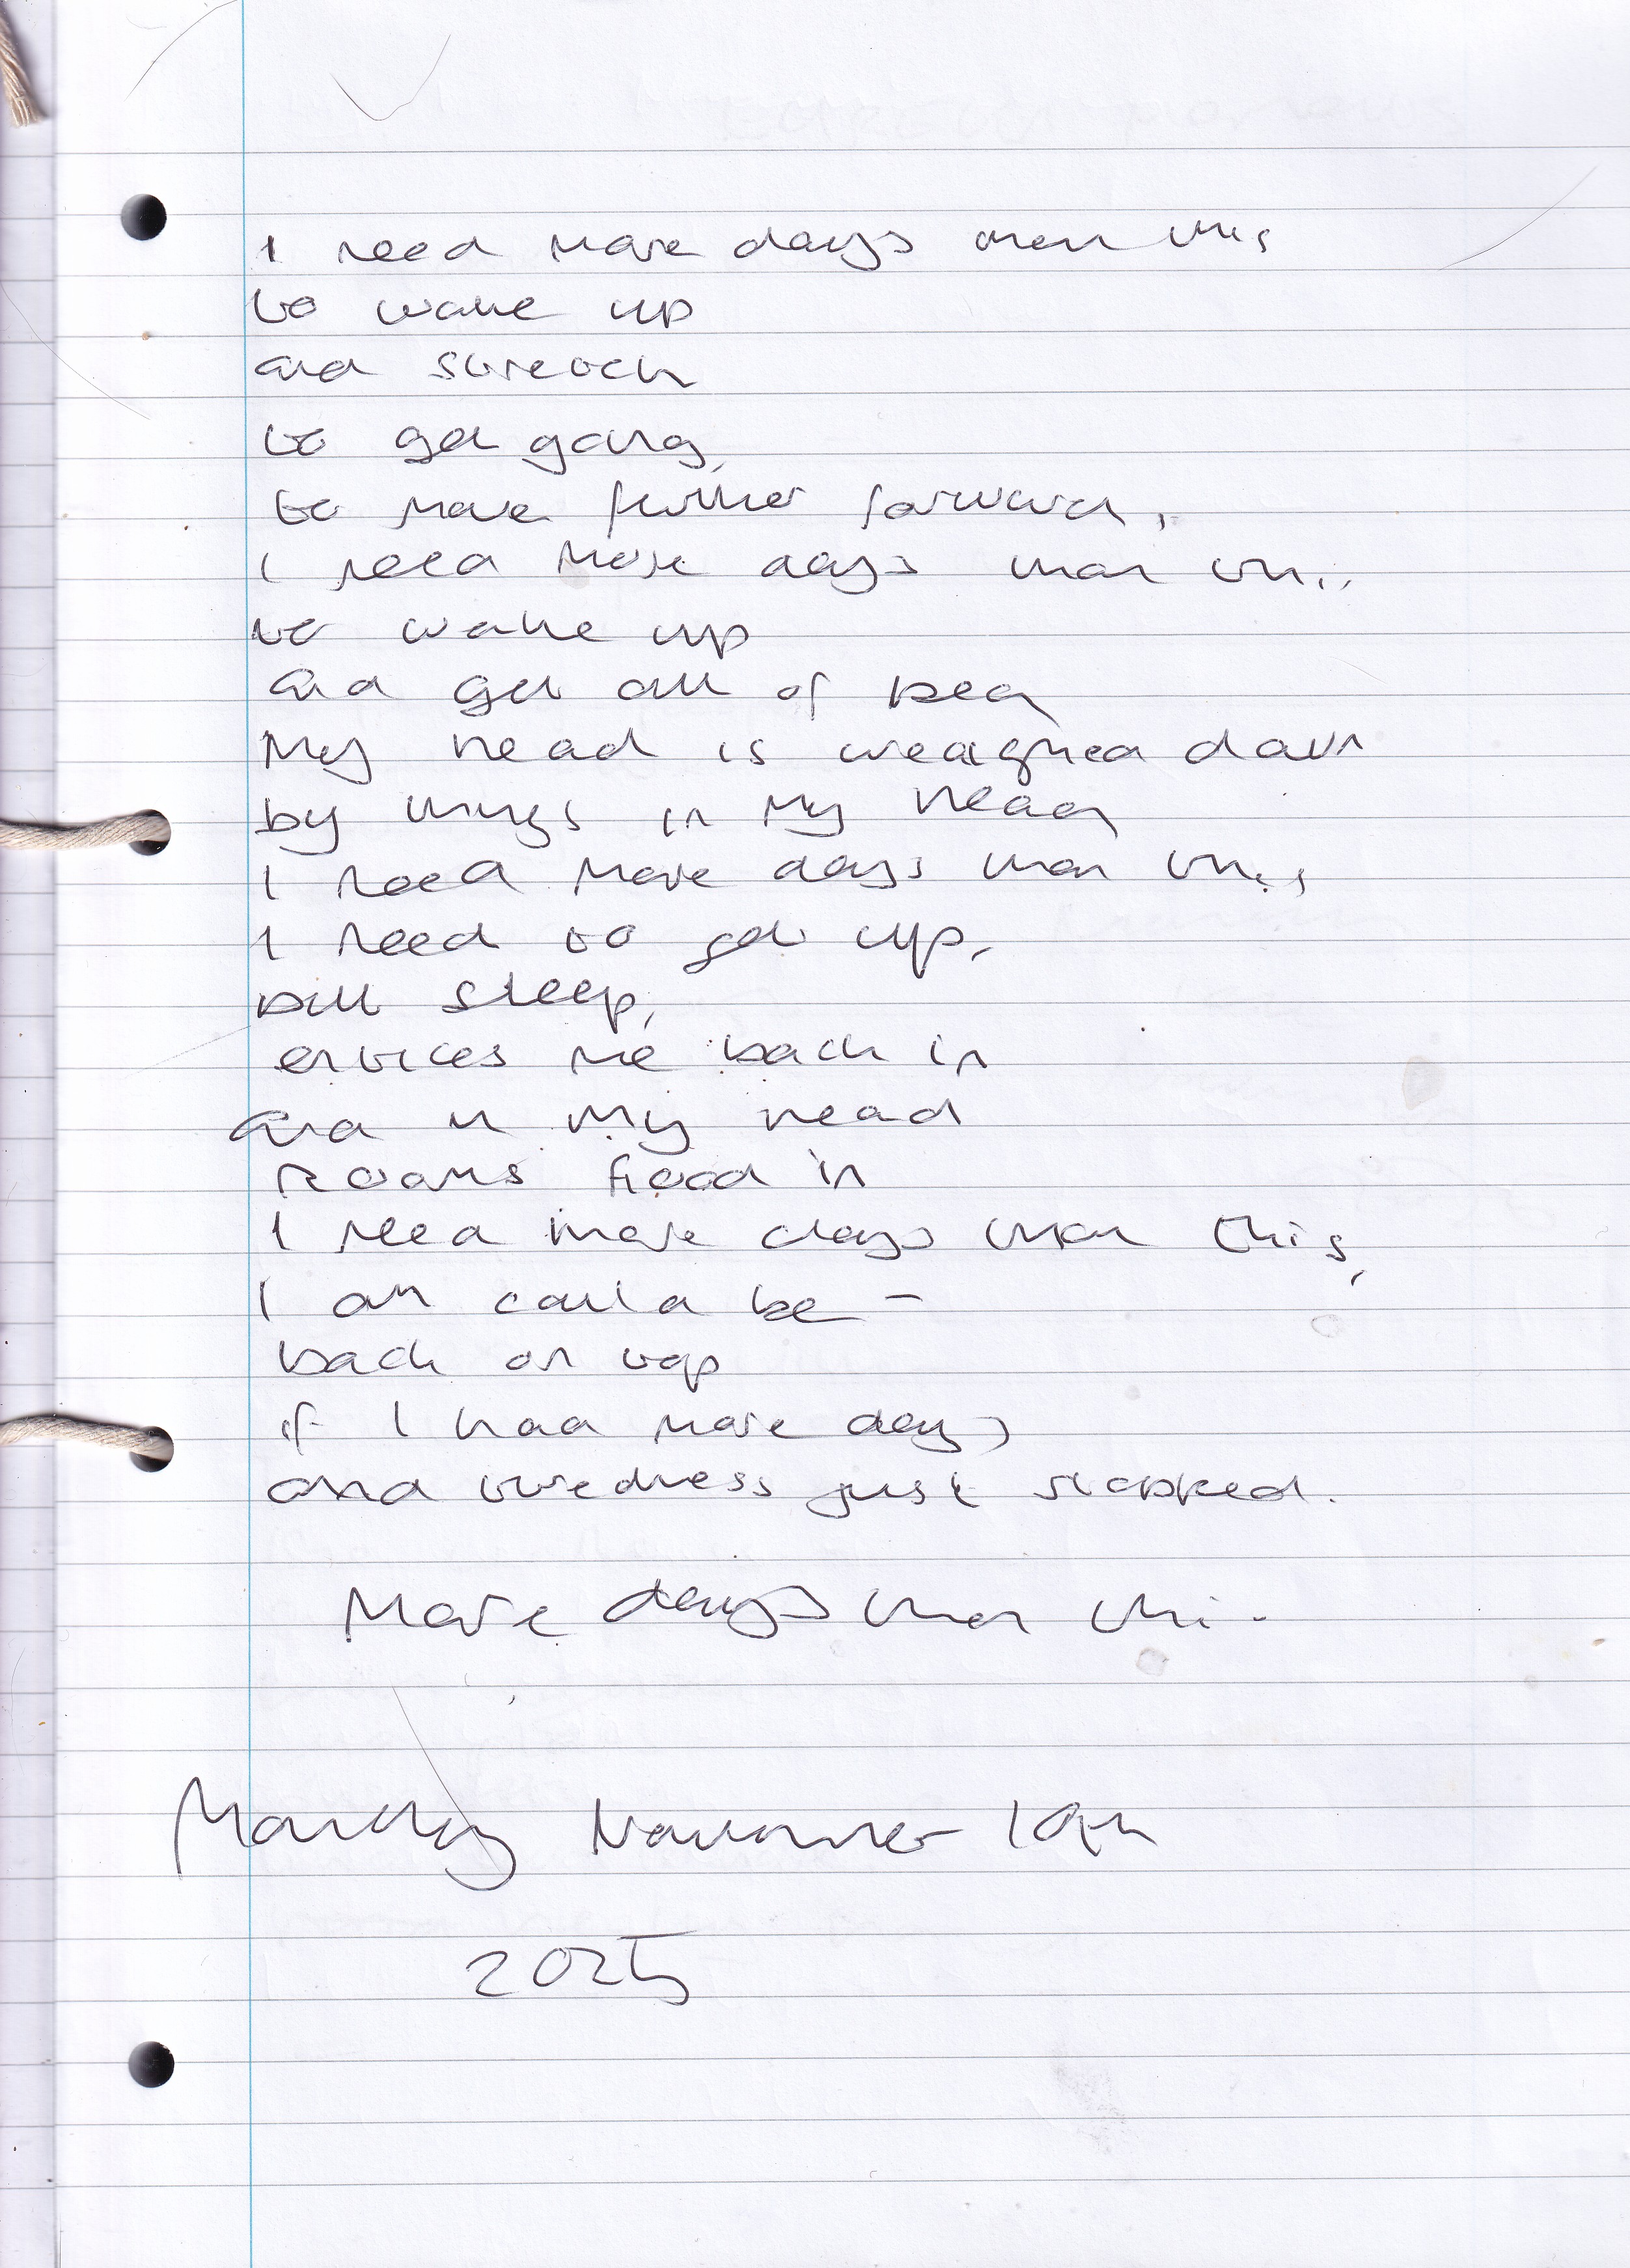 I need more days then this
to wake up
and stretch
to get going,
to move further forward,
I need more days than this
to wake up
and get out of bed
My head is weighed down
by things in my head
I need more days than this,
I need to get up,
but sleep,
entices me back in
and in my head
rooms flood in
I need more days than this,
I am could be -
back on top
if I had more days
and tiredness just stopped.
More days than this.
Monday November 10th
2025